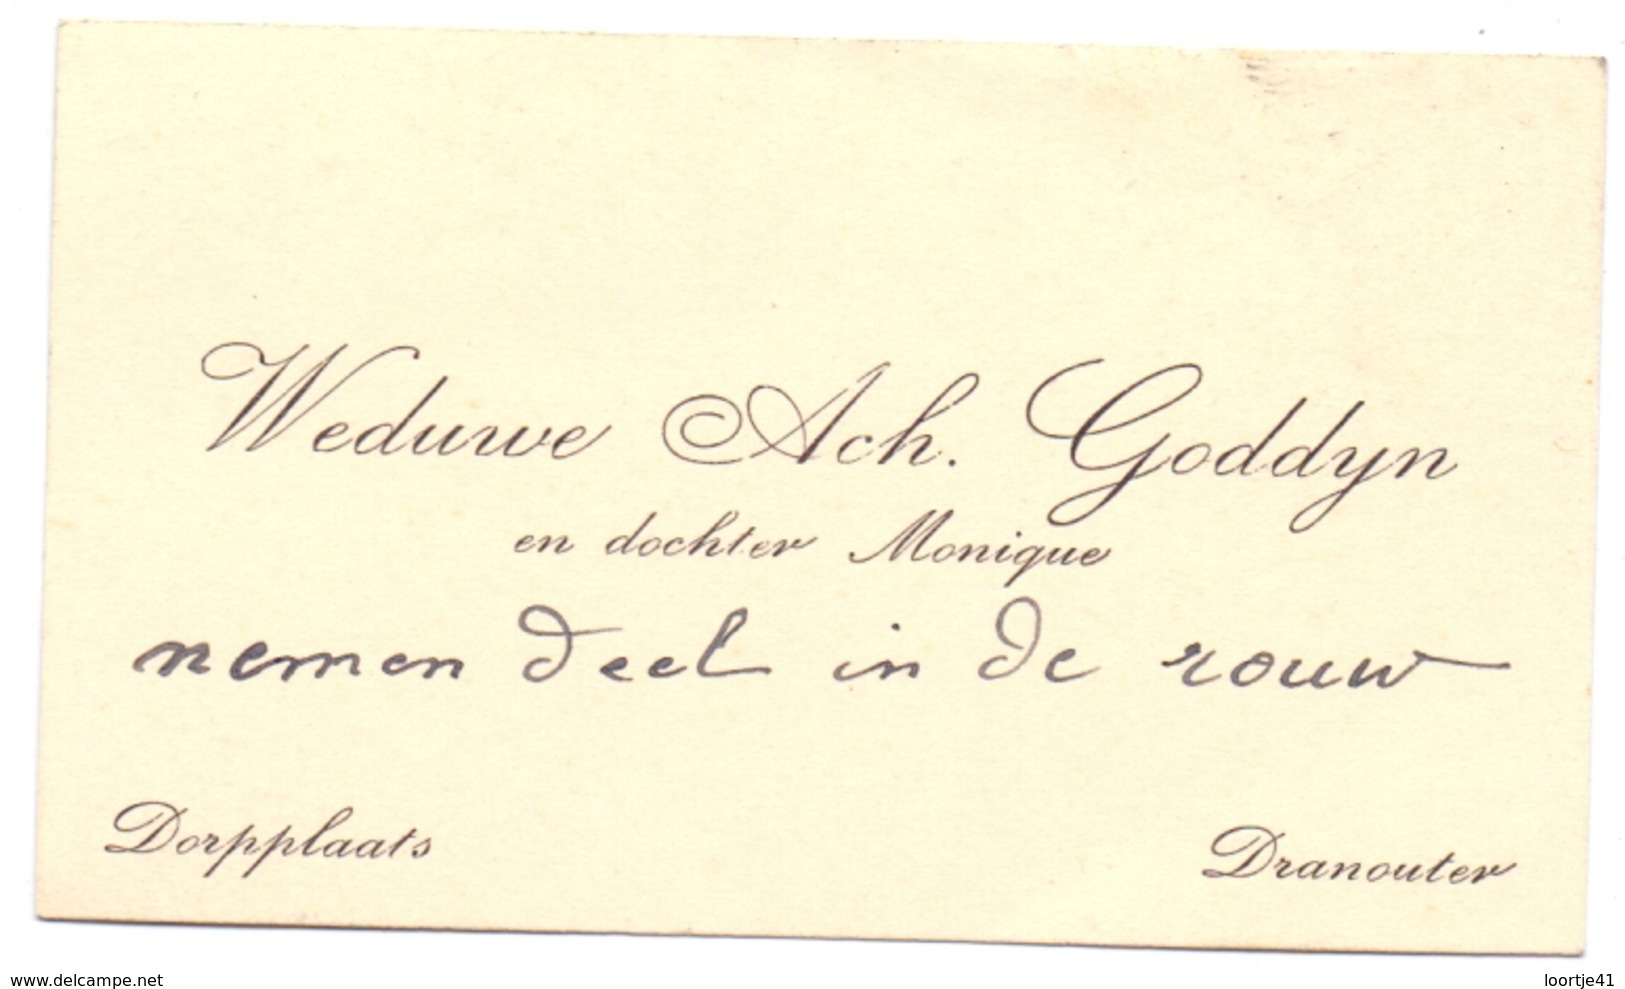 Weduwe Ach. Goddyn
en dochter Monique
nemen deel in de rouw
Dorpplaats Dranouter
www.delcampe.net loortje41